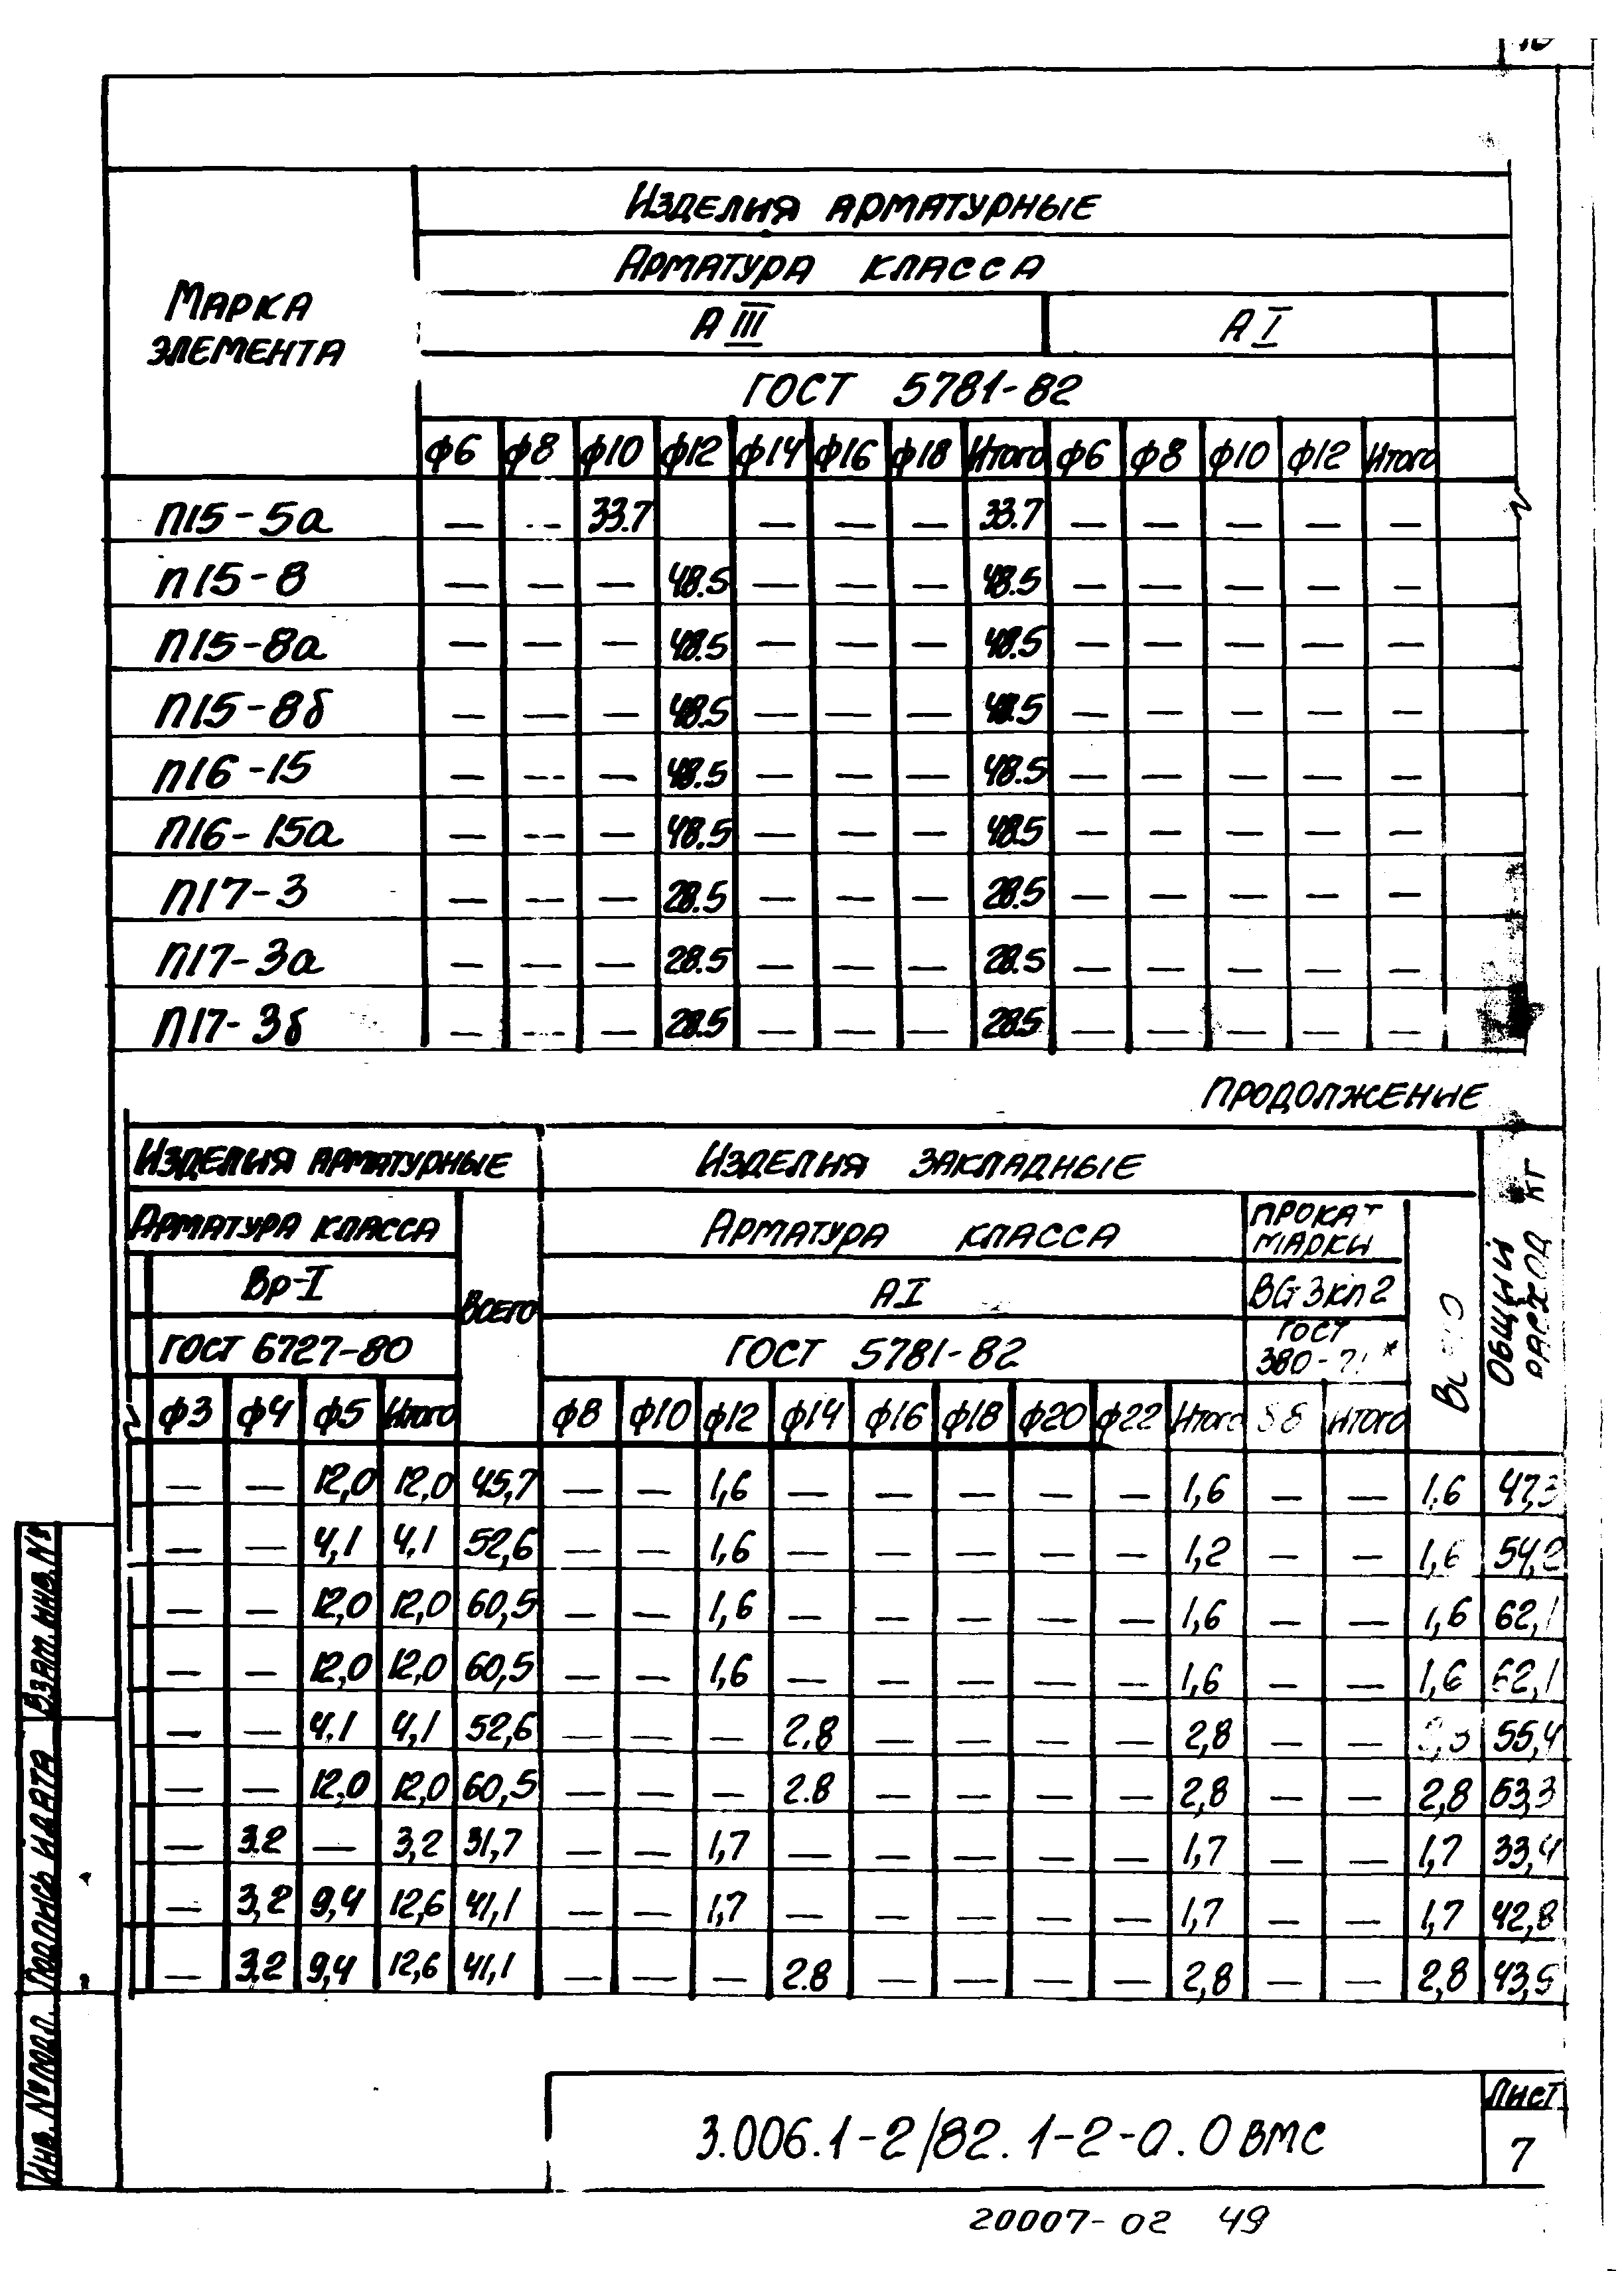 Изделия арматурные
Арматура класса
Марка элемента
А III А I
ГОСТ 5781-82
ф6 ф8 ф10 ф12 ф14 ф16 ф18 Итого ф6 ф8 ф10 ф12 Итого
П15-5а — — 33.7 — — — 33.7 — — — — —
П15-8 — — — 48.5 — — — 48.5 — — — — —
П15-8а — — — 48.5 — — — 48.5 — — — — —
П15-8б — — — 48.5 — — — 48.5 — — — — —
П16-15 — — — 48.5 — — — 48.5 — — — — —
П16-15а — — — 48.5 — — — 48.5 — — — — —
П17-3 — — — 28.5 — — — 28.5 — — — — —
П17-3а — — — 28.5 — — — 28.5 — — — — —
П17-3б — — — 28.5 — — — 28.5 — — — — —
Продолжение
Изделия арматурные Изделия закладные Общий расход кг
Арматура класса Всего Арматура класса Прокат марки
Вр-I АI ВСт3кп2
ГОСТ 6727-80 ГОСТ 5781-82 ГОСТ 380-71*
ф3 ф4 ф5 Итого ф8 ф10 ф12 ф14 ф16 ф18 ф20 ф22 Итого Итого
— — 12,0 12,0 45,7 — — 1,6 — — — — — 1,6 — — 1,6 47,3
— — 4,1 4,1 52,6 — — 1,6 — — — — — 1,2 — — 1,6 54,2
— — 12,0 12,0 60,5 — — 1,6 — — — — — 1,6 — — 1,6 62,1
— — 12,0 12,0 60,5 — — 1,6 — — — — — 1,6 — — 1,6 62,1
— — 4.1 4,1 52,6 — — — 2.8 — — — — 2,8 — — 55,4
— — 12.0 12,0 60,5 — — — 2.8 — — — — 2,8 — — 2,8 63,3
— 3.2 — 3,2 31,7 — — 1,7 — — — — — 1,7 — — 1,7 33,4
— 3,2 9,4 12,6 41,1 — — 1,7 — — — — — 1,7 — — 1,7 42,8
— 3.2 9,4 12,6 41,1 — — — 2.8 — — — — 2,8 — — 2,8 43,9
Взам. инв. №
Подпись и дата
Инв. № подл.
3.006.1-2/82.1-2-0.0ВМС
Лист
7
20007-02 49